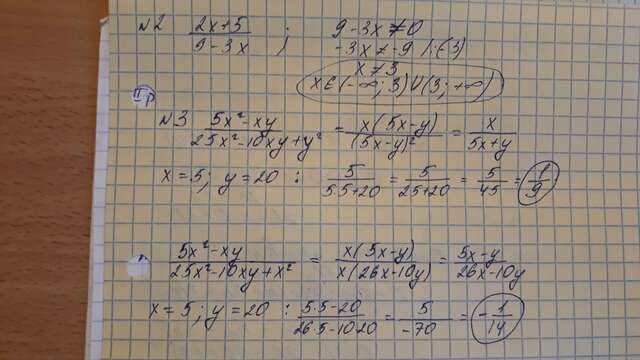 N2 (2x+5)/(9-3x) ; 9-3x≠0
-3x≠-9 /:(-3)
x≠3
x∈(-∞; 3)∪(3; +∞)
IIр
N3 (5x²-xy)/(25x²-10xy+y²) = x(5x-y)/(5x-y)² = x/(5x+y)
x=5; y=20 : 5/(5·5+20) = 5/(25+20) = 5/45 = 1/9
(5x²-xy)/(25x²-10xy+x²) = x(5x-y)/x(26x-10y) = (5x-y)/(26x-10y)
x=5; y=20 : (5·5-20)/(26·5-10·20) = 5/-70 = -1/14